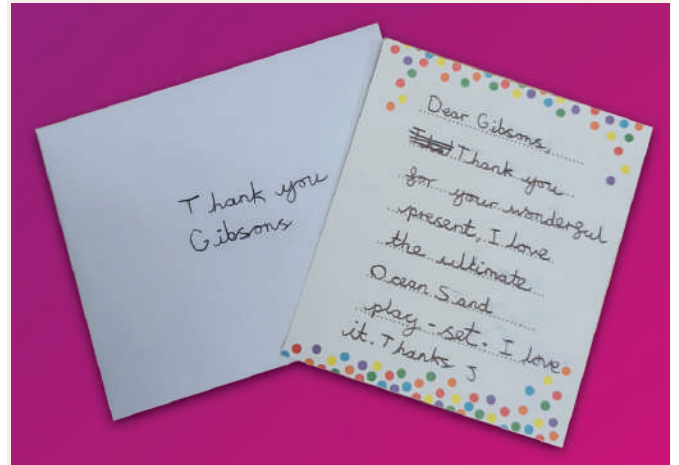 Thank you
Gibsons
Dear Gibsons,
Thank you
for your wonderful
present, I love
the ultimate
Ocean Sand
play-set. I love
it. Thanks J